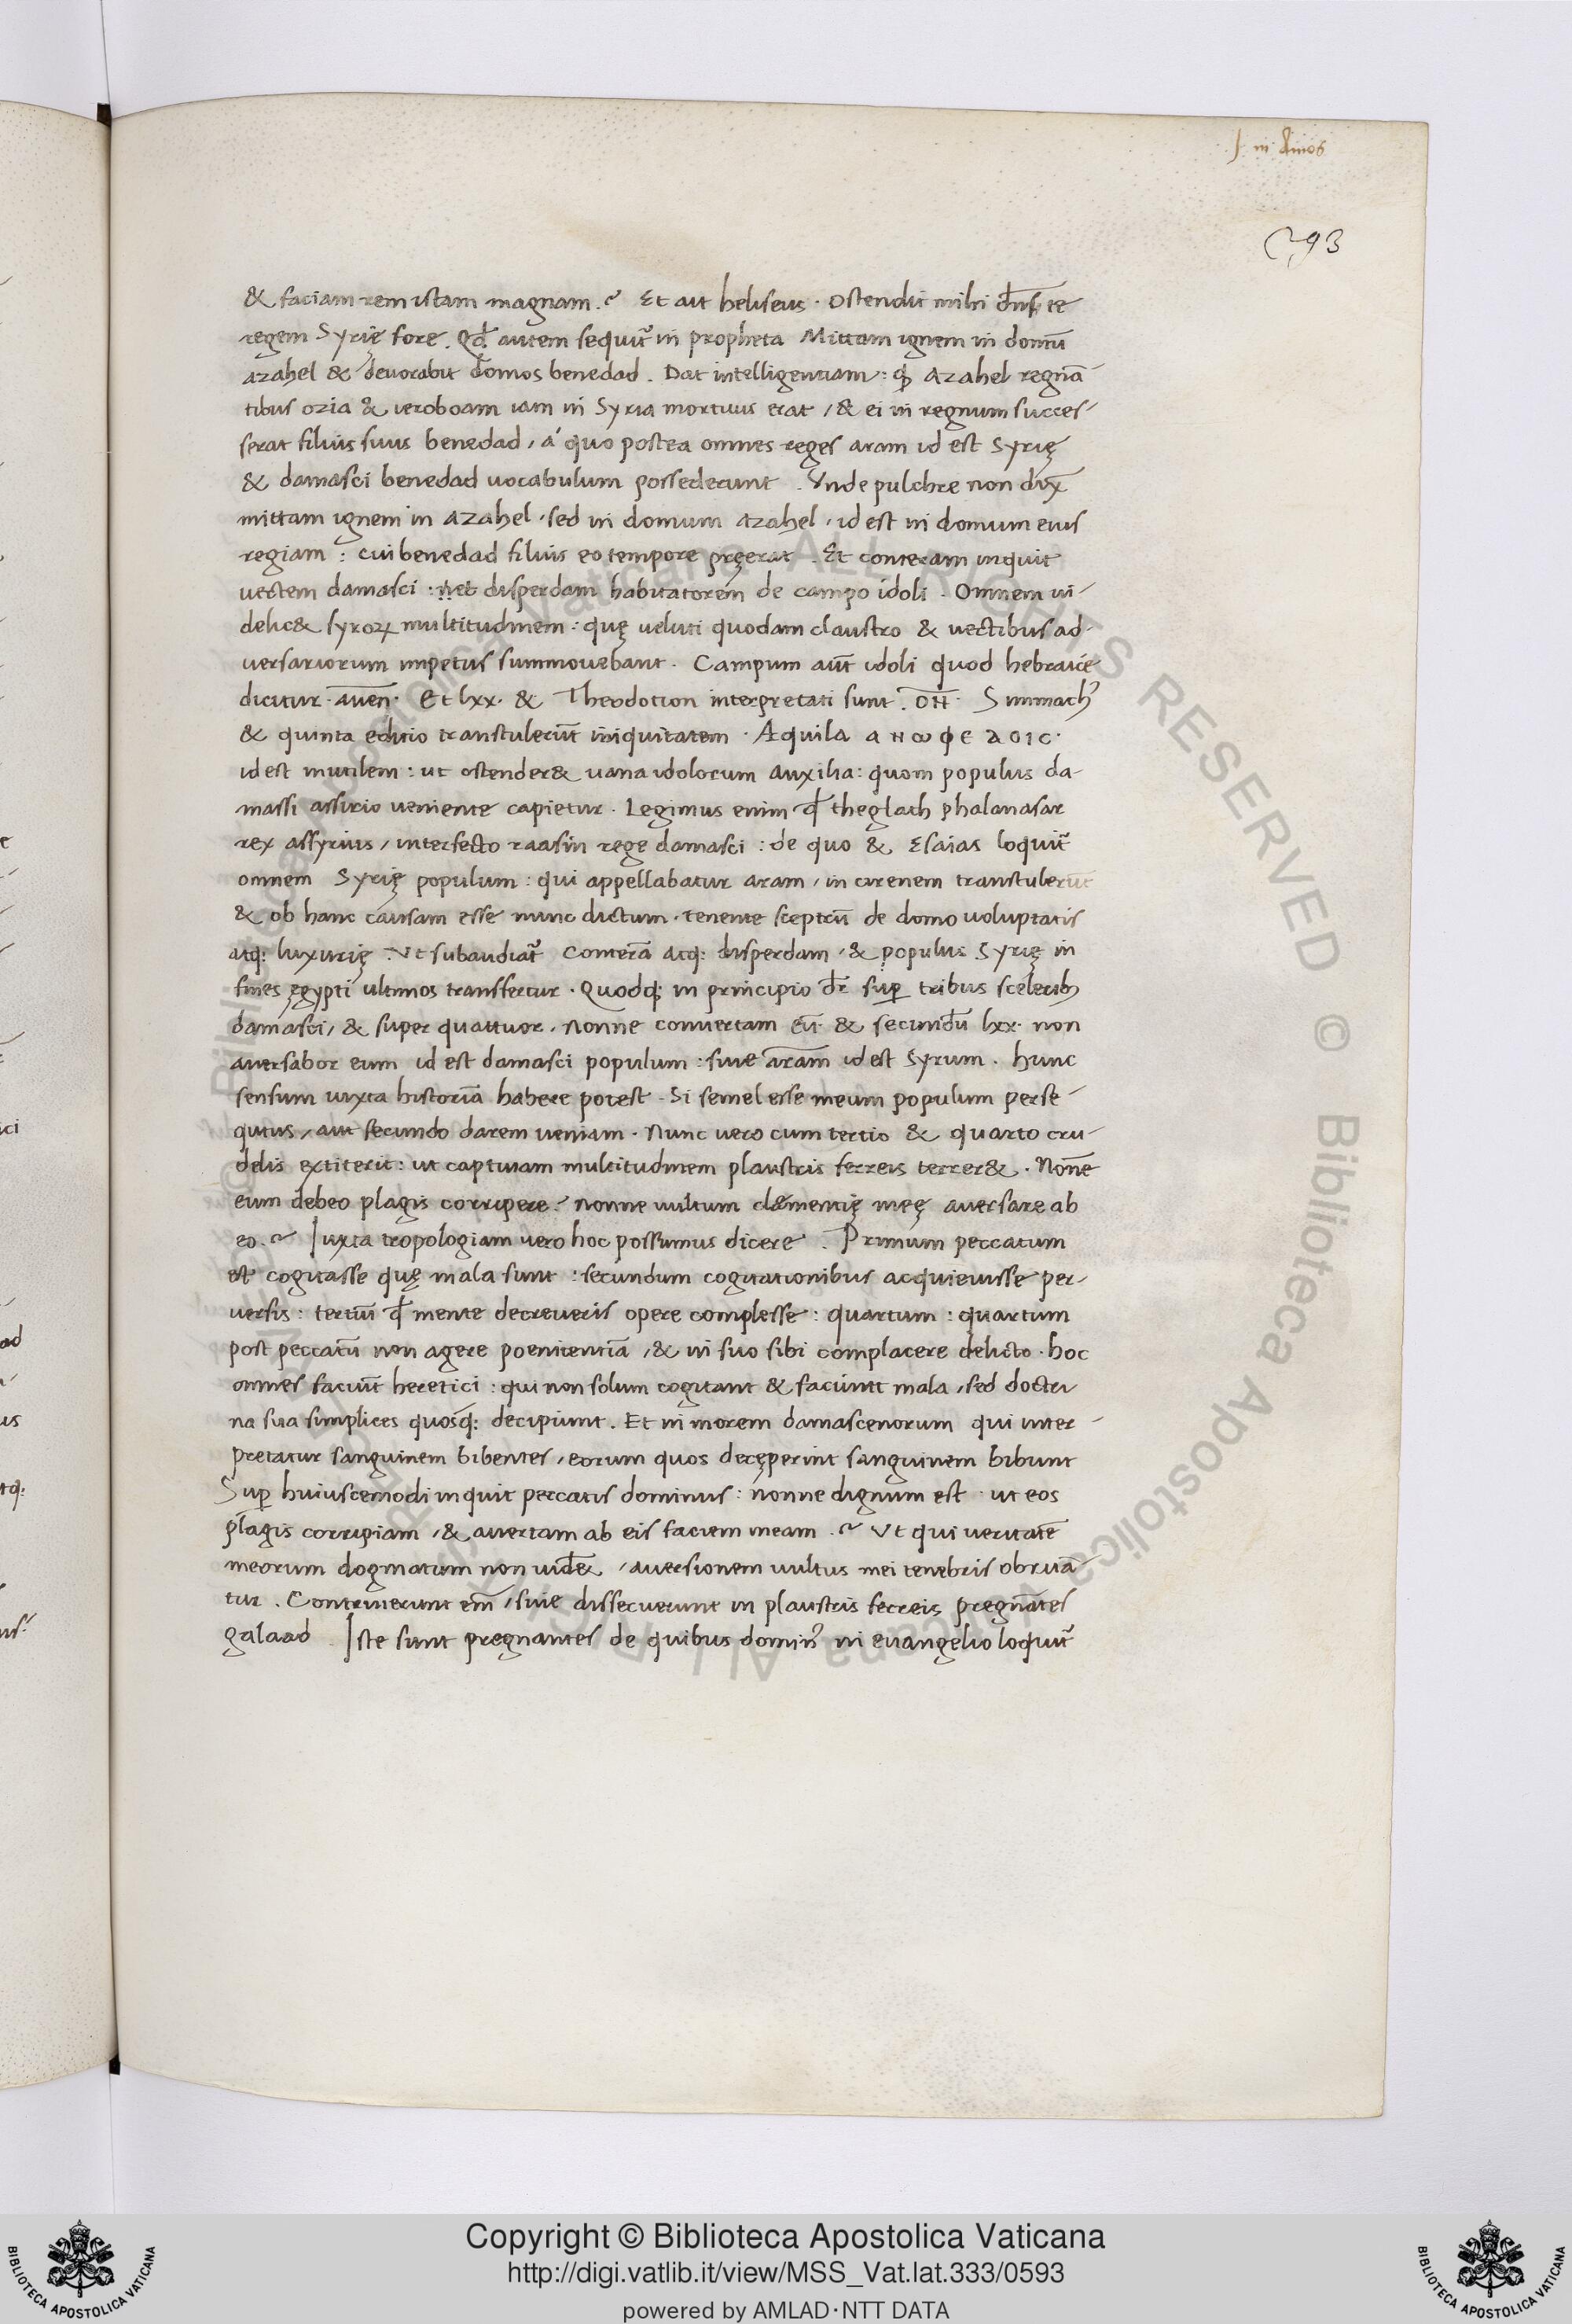 I. in Amos
293
& faciam rem istam magnam.? Et ait heliseus. Ostendit mihi dn̄s te
regem Syrię fore. Qd̄ autem sequit᷑ in propheta Mittam ignem in domū
azahel & deuorabit domos benedad. Dat intelligentiam: ꝙ azahel regnā
tibus ozia & ieroboam iam in Syria mortuus erat, & ei in regnum succes-
serat filius suus benedad, a quo postea omnes reges aram id est Syrię
& damasci benedad uocabulum possederunt. Vnde pulchre non dix̄
mittam ignem in azahel, sed in domum azahel, id est in domum eius
regiam: cui benedad filius eo tempore pręerat. Et conteram inquit
uectem damasci: disperdam habitatorem de campo idoli. Omnem ui-
delic& syroꝝ multitudinem: quę ueluti quodam claustro & uectibus ad-
uersariorum impetus summouebant. Campum aūt idoli quod hebraice
dicitur. auen. Et lxx. & Theodotion interpretati sunt. ON. Simmachꝰ
& quinta editio transtulerūt iniquitatem. Aquila ανωφελοις.
id est inutilem: ut ostender& uana idolorum auxilia: quom populus da-
massi assirio ueniente capietur. Legimus enim qd̄ theglath phalanasar
rex assyrius, interfecto raasin rege damasci: de quo & Esaias loquit᷑
omnem Syrię populum: qui appellabatur aram, in cirenem transtulerūt
& ob hanc causam esse nunc dictum. tenente sceptrū de domo uoluptatis
atq: luxurię. Vt subaudiat᷑ Conterā atq: disperdam, & populus Syrię in
fines ęgypti ultimos transfertur. Quodq; in principio dr̄ sup̄ tribus sceleribꝫ
damasci, & super quattuor, nonne conuertam eū. & secundū lxx. non
auersabor eum id est damasci populum: siue aram id est Syrum. hunc
sensum iuxta historiā habere potest. Si semel esse meum populum perse-
qutus, aut secundo darem ueniam. Nunc uero cum tertio & quarto cru-
delis extiterit: ut captiuam multitudinem plaustris ferreis terrer&. Nōne
eum debeo plagis corripere? nonne uultum clementię meę auersare ab
eo.? Iuxta tropologiam uero hoc possumus dicere. Primum peccatum
est cogitasse quę mala sunt: secundum cogitationibus acquieuisse per-
uersis: tertiū qd̄ mente decreueris opere complesse: quartum: quartum
post peccatū non agere poenitentiā, & in suo sibi complacere delicto. hoc
omnes faciūt heretici: qui non solum cogitant & faciunt mala, sed doctri
na sua simplices quosq: decipiunt. Et in morem damascenorum qui inter-
pretatur sanguinem bibentes, eorum quos decęperint sanguinem bibunt
Sup̄ huiuscemodi inquit peccatis dominus: nonne dignum est ut eos
plagis corripiam, & auertam ab eis faciem meam.? Vt qui ueritatē
meorum dogmatum non uider&, auersionem uultus mei tenebris obruā
tur. Contriuerunt em̄, siue dissecuerunt in plaustris ferreis pregnātes
galaad. Iste sunt pregnantes de quibus dominꝰ in euangelio loquit᷑
Copyright © Biblioteca Apostolica Vaticana
http://digi.vatlib.it/view/MSS_Vat.lat.333/0593
powered by AMLAD·NTT DATA